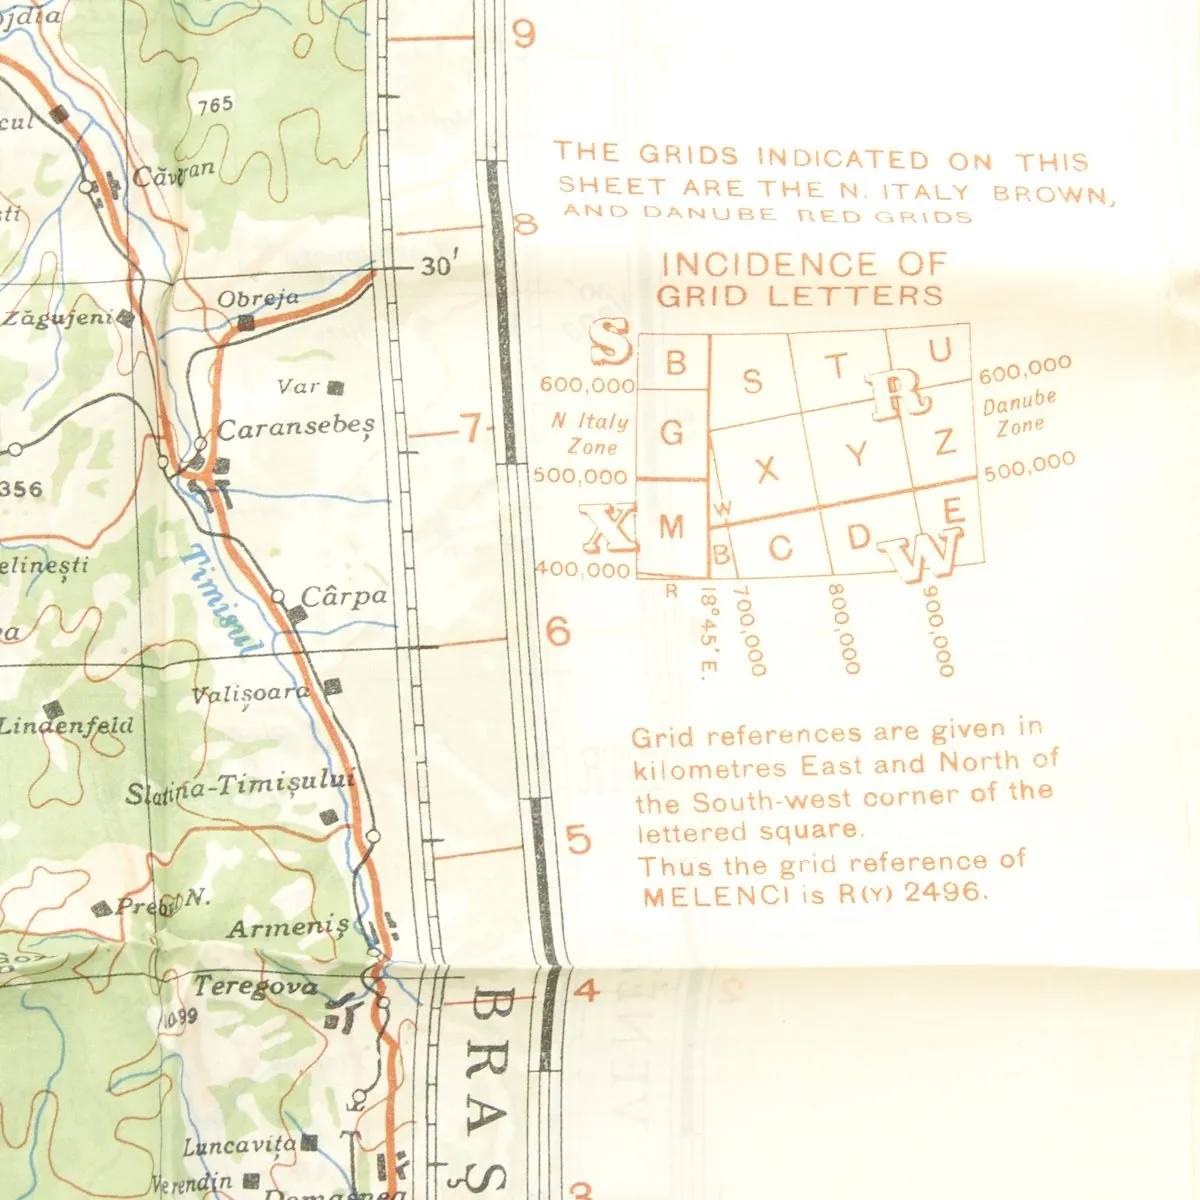 9
765
Căvăran
THE GRIDS INDICATED ON THIS
SHEET ARE THE N. ITALY BROWN,
AND DANUBE RED GRIDS
8
30'
INCIDENCE OF
GRID LETTERS
Obreja
Zăgujeni
S
B
S
T
U
R
600,000
600,000
Var
N Italy
Zone
G
X
Y
Z
Danube
Zone
Caransebeș
7
500,000
500,000
356
X
M
W
B
C
D
E
W
400,000
R
18°45' E.
700,000
800,000
900,000
elinești
Timișul
Cârpa
6
Valișoara
Lindenfeld
Slatina-Timișului
Grid references are given in
kilometres East and North of
the South-west corner of the
lettered square.
Thus the grid reference of
MELENCI is R(Y) 2496.
5
N.
Armeniș
Teregova
4
1099
BRAȘ
Luncavița
Verendin
Domașnea
3